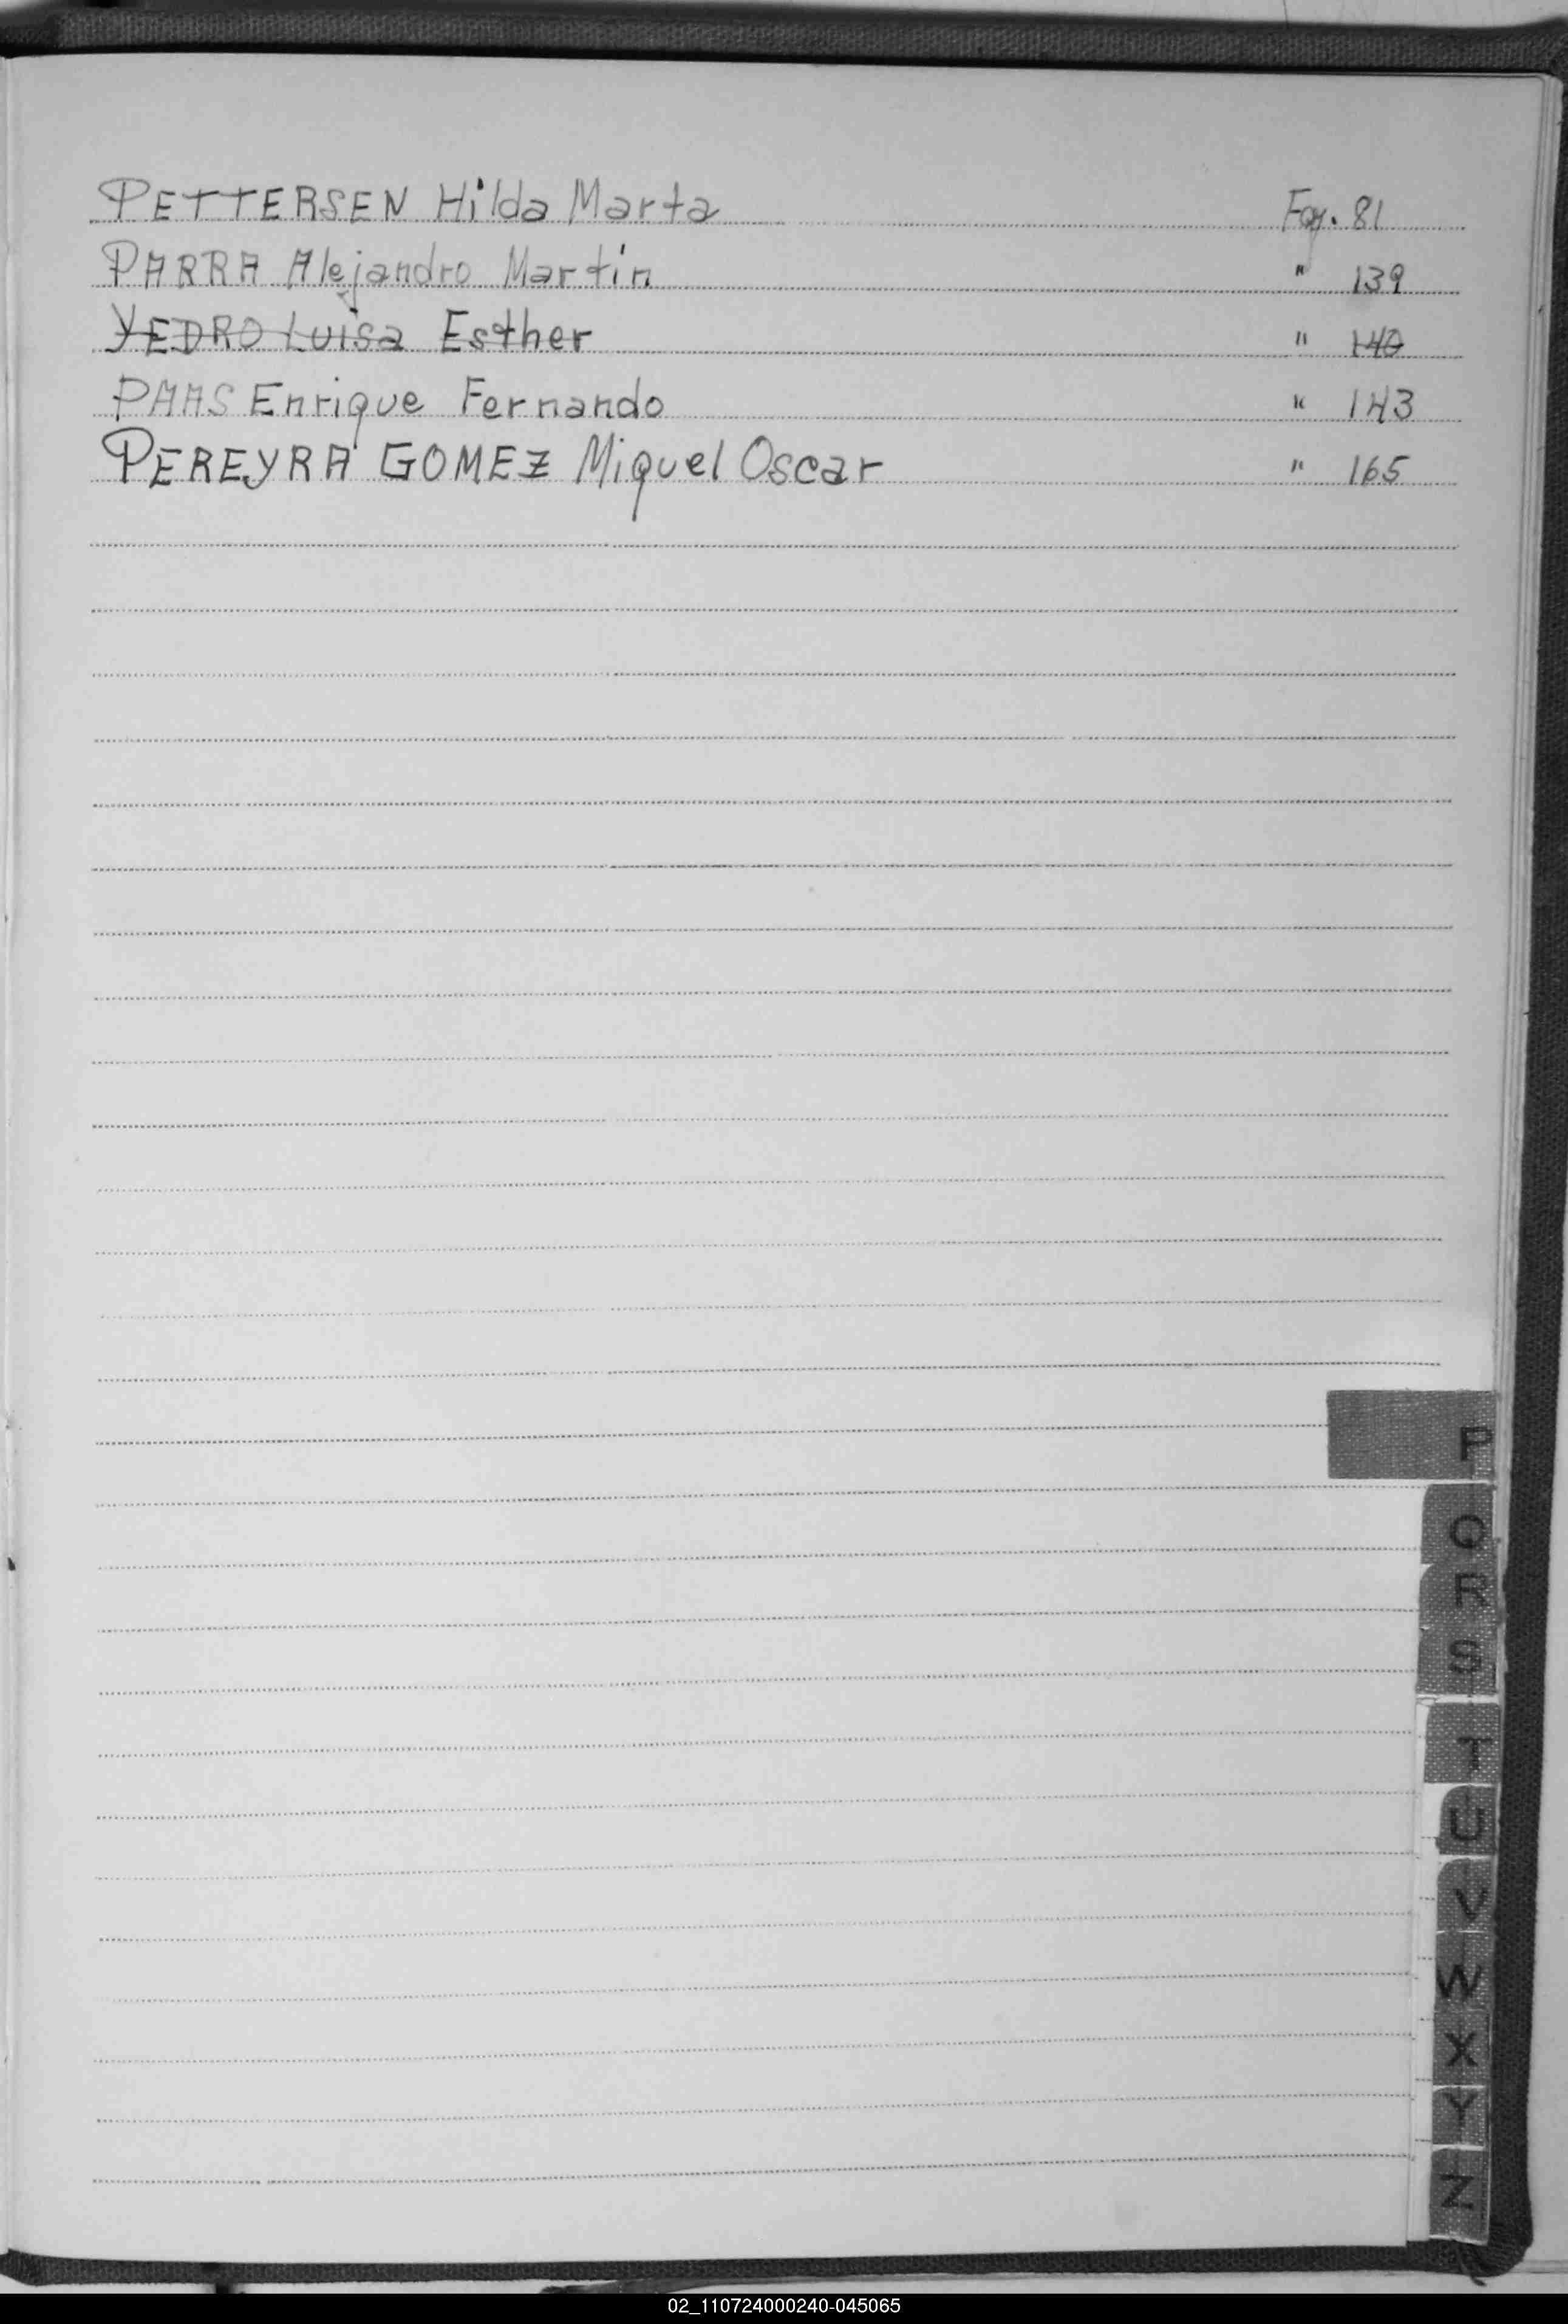 PETTERSEN Hilda Marta Fog. 81
PARRA Alejandro Martin " 139
YEDRO Luisa Esther " 140
PAAS Enrique Fernando " 143
PEREYRA GOMEZ Miguel Oscar " 165
P
Q
R
S
T
U
V
W
X
Y
Z
02_110724000240-045065